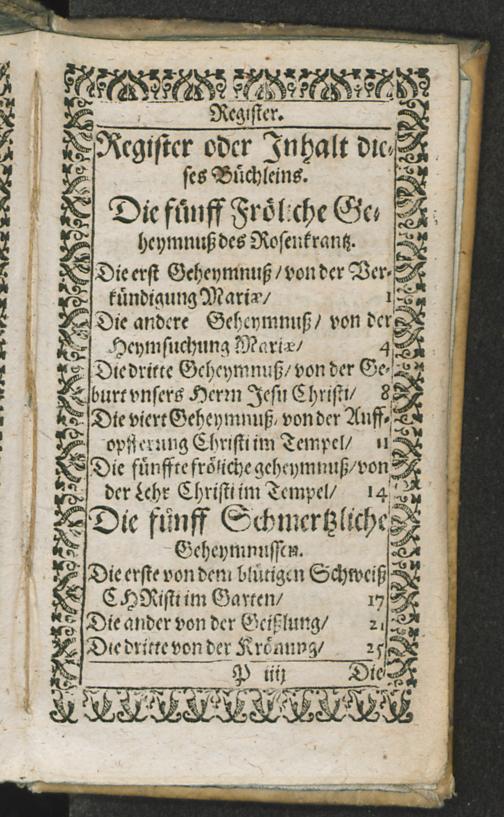 Register.
Register oder Inhalt die-
ses Büchleins.
Die fünff Fröliche Ge-
heymnuß des Rosenkrantz.
Die erst Geheymnuß / von der Ver-
kündigung Mariæ / 1
Die andere Geheymnuß / von der
Heymsuchung Mariæ / 4
Die dritte Geheymnuß / von der Ge-
burt vnsers Herrn Jesu Christi / 8
Die viert Geheymnuß / von der Auff-
opfferung Christi im Tempel / 11
Die fünffte fröliche geheymnuß / von
der Lehr Christi im Tempel / 14
Die fünff Schmertzliche
Geheymnussen.
Die erste von dem blütigen Schweiß
CHRisti im Garten / 17
Die ander von der Geißlung / 21
Die dritte von der Krönung / 25
P iiij Die